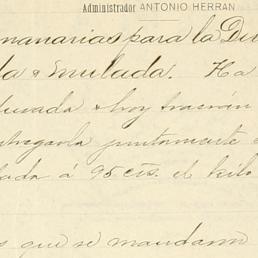 Administrador ANTONIO HERRAN
para la Du
da & Emulada. Ha
& hoy traerán
entregarla juntamente
á 95 cts. el kilo
s que se mandaron